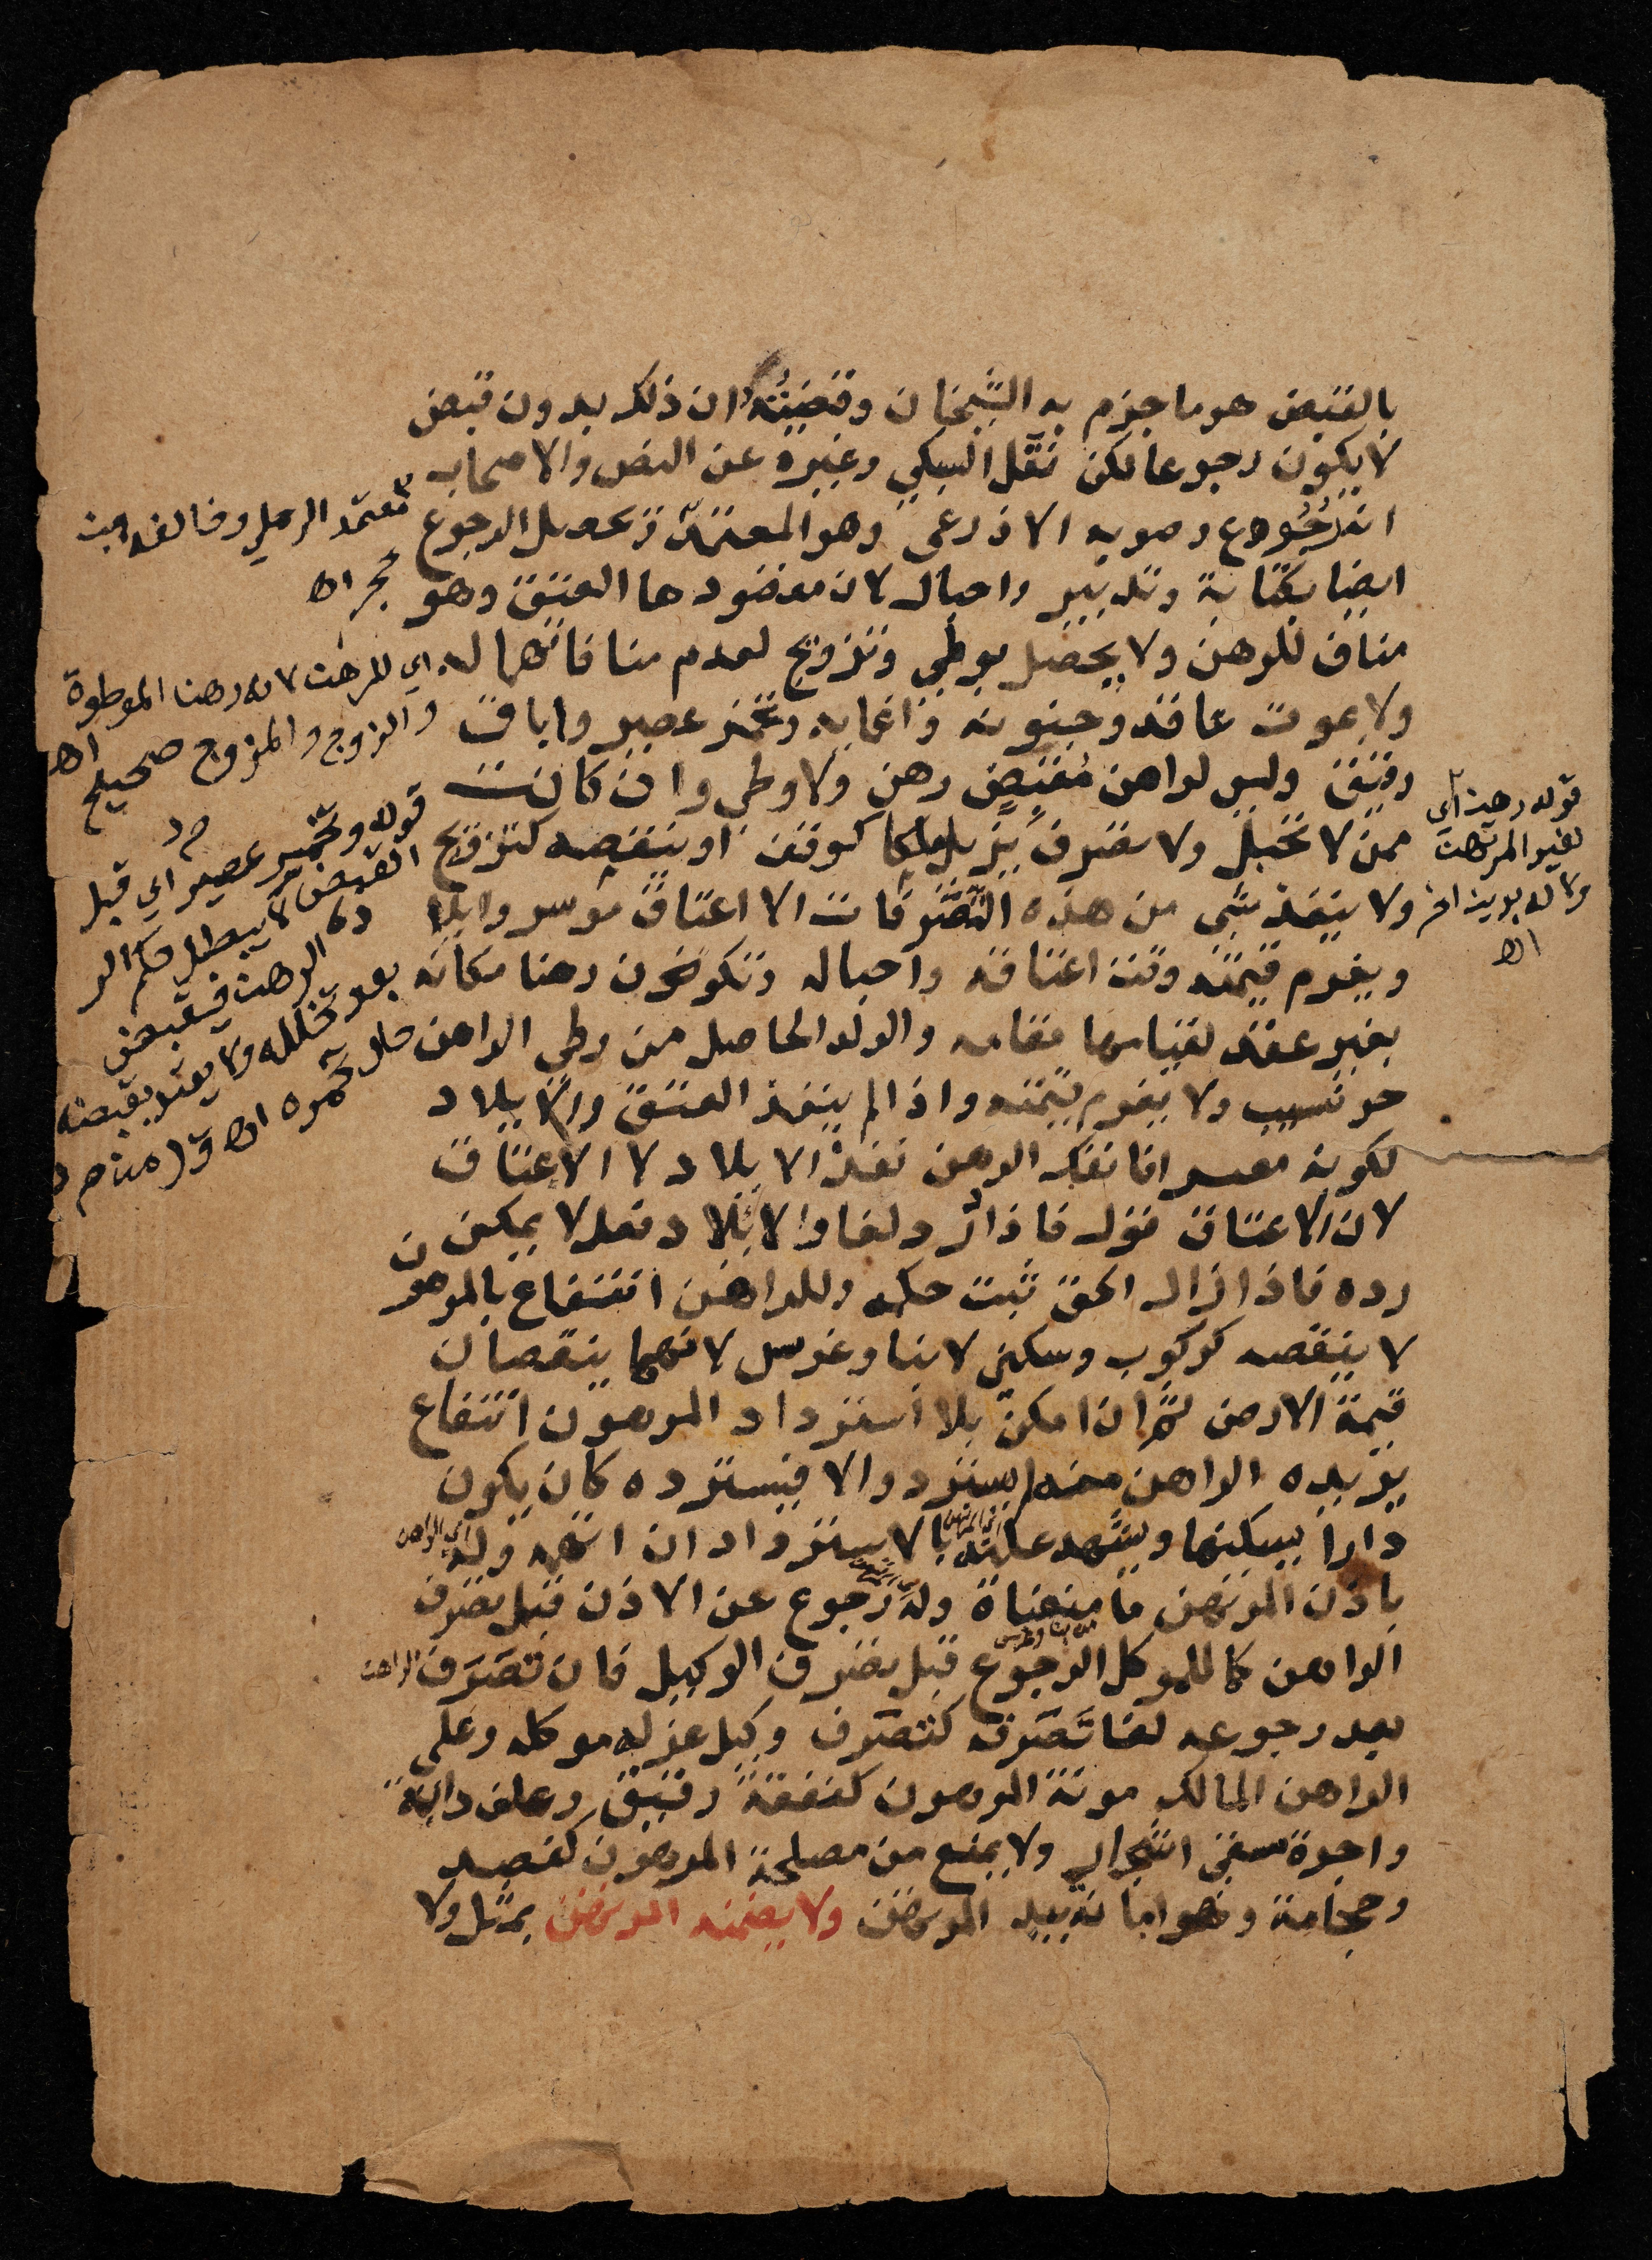 بالقبض هو ما جزم به الشيخان وقضيته ان ذلك بدون قبض
لا يكون رجوعا لكن نقل السبكي وغيره عن النص والاصحاب
انه رجوع وصوبه الاذرعي وهو المعتمد ويحصل الرجوع
ايضا بكتابة وتدبير واحبال لان مقصودها العتق وهو
مناف للرهن ولا يحصل بوطي وتزويج لعدم منافاتهما له
ولا بموت عاقد وجنونه واغمايه وتخمر عصير واباق
رقيق وليس لراهن مقبض رهن ولا وطي وان كانت
ممن لا تحبل ولا تصرف يزيل ملكا كوقف او ينقصه كتزويج
ولا ينفذ شي من هذه التصرفات الا اعتاق موسر وايلا
ويغرم قيمته وقت اعتاقه واحباله وتكون رهنا مكانه
بغير عقد لقيامها مقامه والولد الحاصل من وطي الراهن
حر نسيب ولا يغرم قيمته واذا لم ينفذ العتق والايلاد
لكونه معسرا فانفك الرهن نفذ الايلاد لا الاعتاق
لان الاعتاق قول فاذا رد لغا والايلاد فعل لا يمكن
رده فاذا زال الحق ثبت حكمه وللراهن انتفاع بالمرهون
لا ينقصه كركوب وسكنى لا بنا وغرس لانهما ينقصان
قيمة الارض ثم ان امكن بلا استرداد المرهون انتفاع
يريده الراهن منه لم يسترد والا فيسترده كان يكون
دارا يسكنها ويشهد عليه بالاسترداد ان اتهمه وله اي الراهن
باذن المرتهن ما منعناه وله رجوع عن الاذن قبل تصرف
من بنا وغرس
الراهن كما للموكل الرجوع قبل تصرف الوكيل فان تصرف الراهن
بعد رجوعه لغا تصرفه كتصرف وكيل عزله موكله وعلى
الراهن المالك مونة المرهون كنفقة رقيق وعلف دابة
واجرة سقي اشجار ولا يمنع من مصلحة المرهون كفصد
وحجامة وهو امانة بيد المرتهن ولا يضمنه المرتهن بمثل ولا
معتمد الرملي وخالفه ابن
حجر اه
اي للرهن لان رهنا الموطوة
والزوج والمزوج صحيح اه
م د
قوله وتخمر عصير اي قبل
القبض لا يبطل حكم الر
الرهن فيقبض
بعد تخلله ولا يعتد بقبضه
حال تخمره اه
قوله رهن اي
لغير المرتهن
ولا له بدين اخر
اه